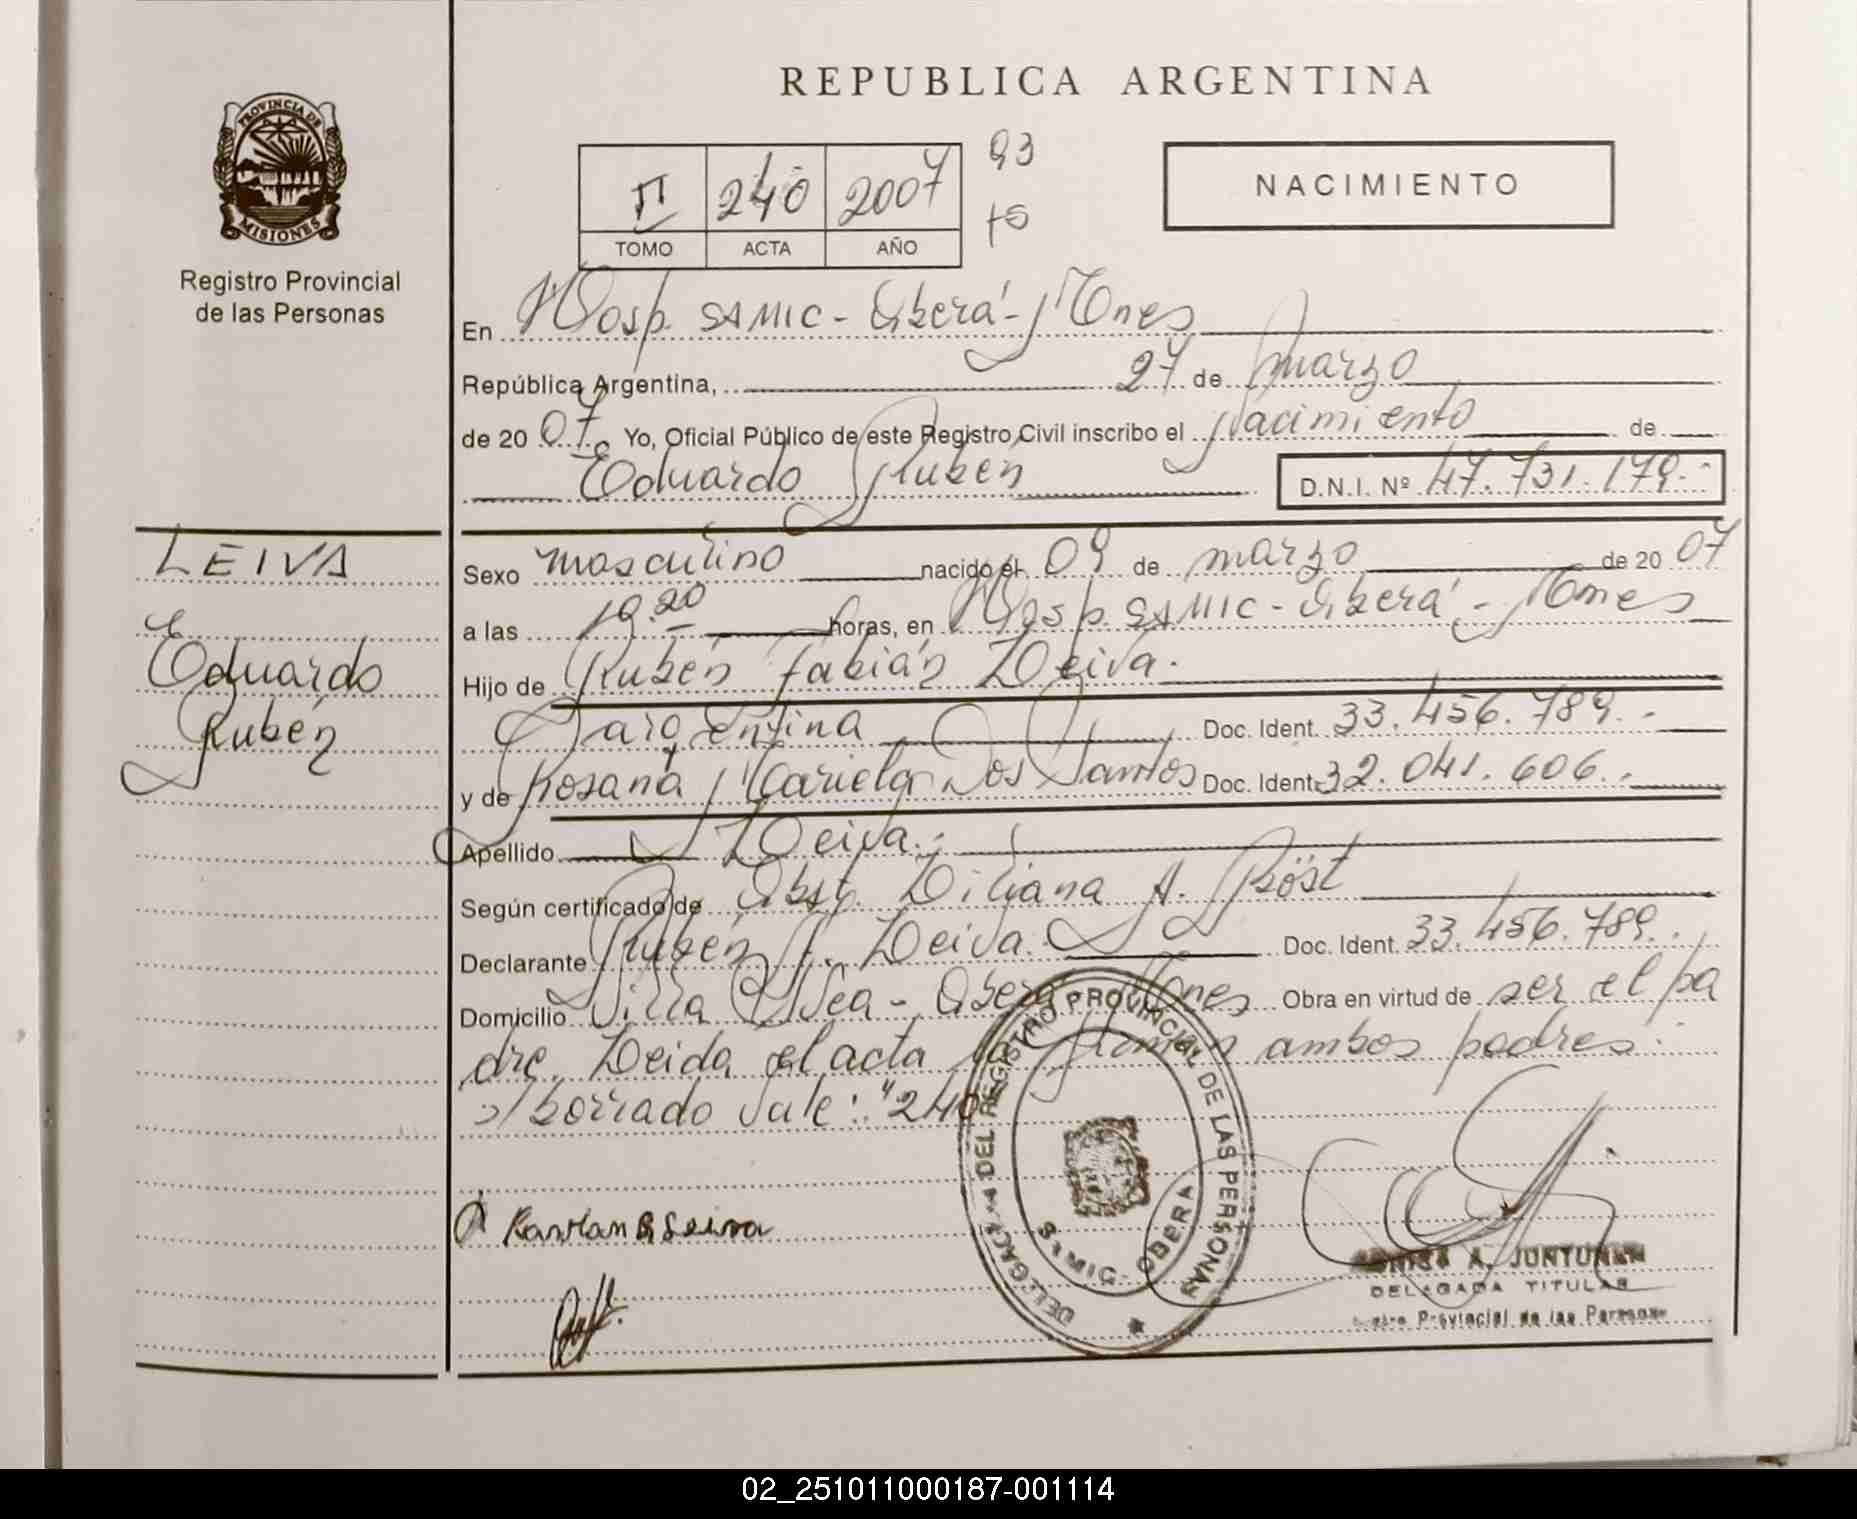 REPUBLICA ARGENTINA
PROVINCIA DE
MISIONES
Registro Provincial
de las Personas
II 240 2007
TOMO ACTA AÑO
93
NACIMIENTO
En Hosp. SAMIC - Oberá - Mnes
República Argentina, 27 de marzo
de 20 07. Yo, Oficial Público de este Registro Civil inscribo el Nacimiento de
Eduardo Rubén D.N.I. Nº 47.731.179.-
LEIVA
Eduardo
Rubén
Sexo masculino nacido el 09 de marzo de 20 07
a las 19.20 horas, en Hosp. SAMIC - Oberá - Mnes
Hijo de Rubén Fabián Leiva.
argentina Doc. Ident. 33.456.789.-
y de Rosana Mariela Dos Santos Doc. Ident. 32.041.606.-
Apellido Leiva.-
Según certificado de Obst. Liliana A. Röst
Declarante Rubén F. Leiva. Doc. Ident. 33.456.789.
Domicilio Villa - Oberá Mnes Obra en virtud de ser el pa
dre. Leida el acta la firman ambos padres.
s/borrado vale: "240
DELEGACION DEL REGISTRO PROVINCIAL DE LAS PERSONAS
SAMIC - OBERA
A. JUNTUNEN
DELEGADA TITULAR
Provincial de las Personas
02_251011000187-001114